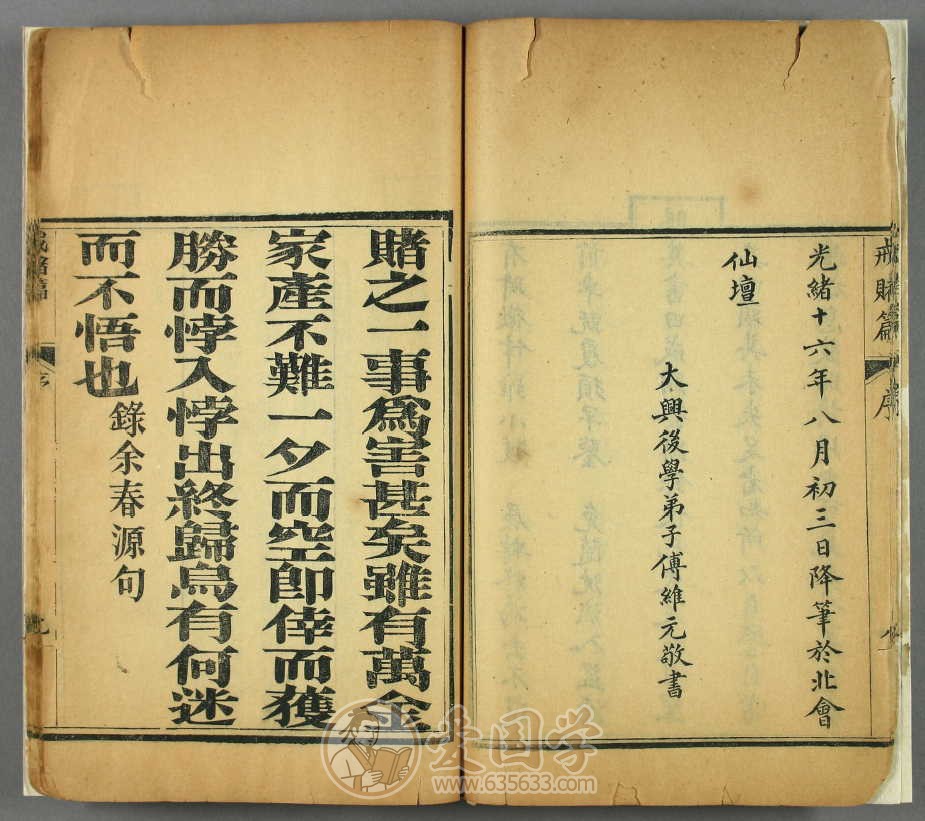 戒賭篇 序
光緒十六年八月初三日降筆於北會
仙壇
大興後學弟子傅維元敬書
賭之一事爲害甚矣雖有萬金
家產不難一夕而空即倖而獲
勝而悖入悖出終歸烏有何迷
而不悟也
錄余春源句
戒賭篇
序
九
爱国学
www.635633.com